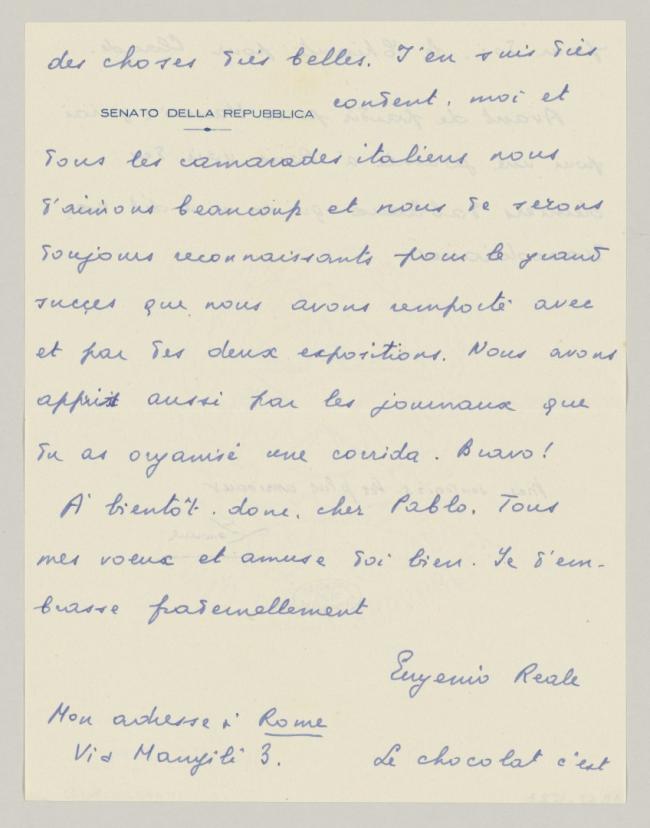 des choses très belles. J'en suis très
content, moi et
SENATO DELLA REPUBBLICA
tous les camarades italiens nous
t'aimons beaucoup et nous te serons
toujours reconnaissants pour le grand
succès que nous avons remporté avec
et par tes deux expositions. Nous avons
appris aussi par les journaux que
tu as organisé une corrida. Bravo!
À bientôt donc, cher Pablo. Tous
mes voeux et amuse toi bien. Je t'em-
brasse fraternellement
Eugenio Reale
Mon adresse à Rome
Via Mangili 3.
Le chocolat c'est